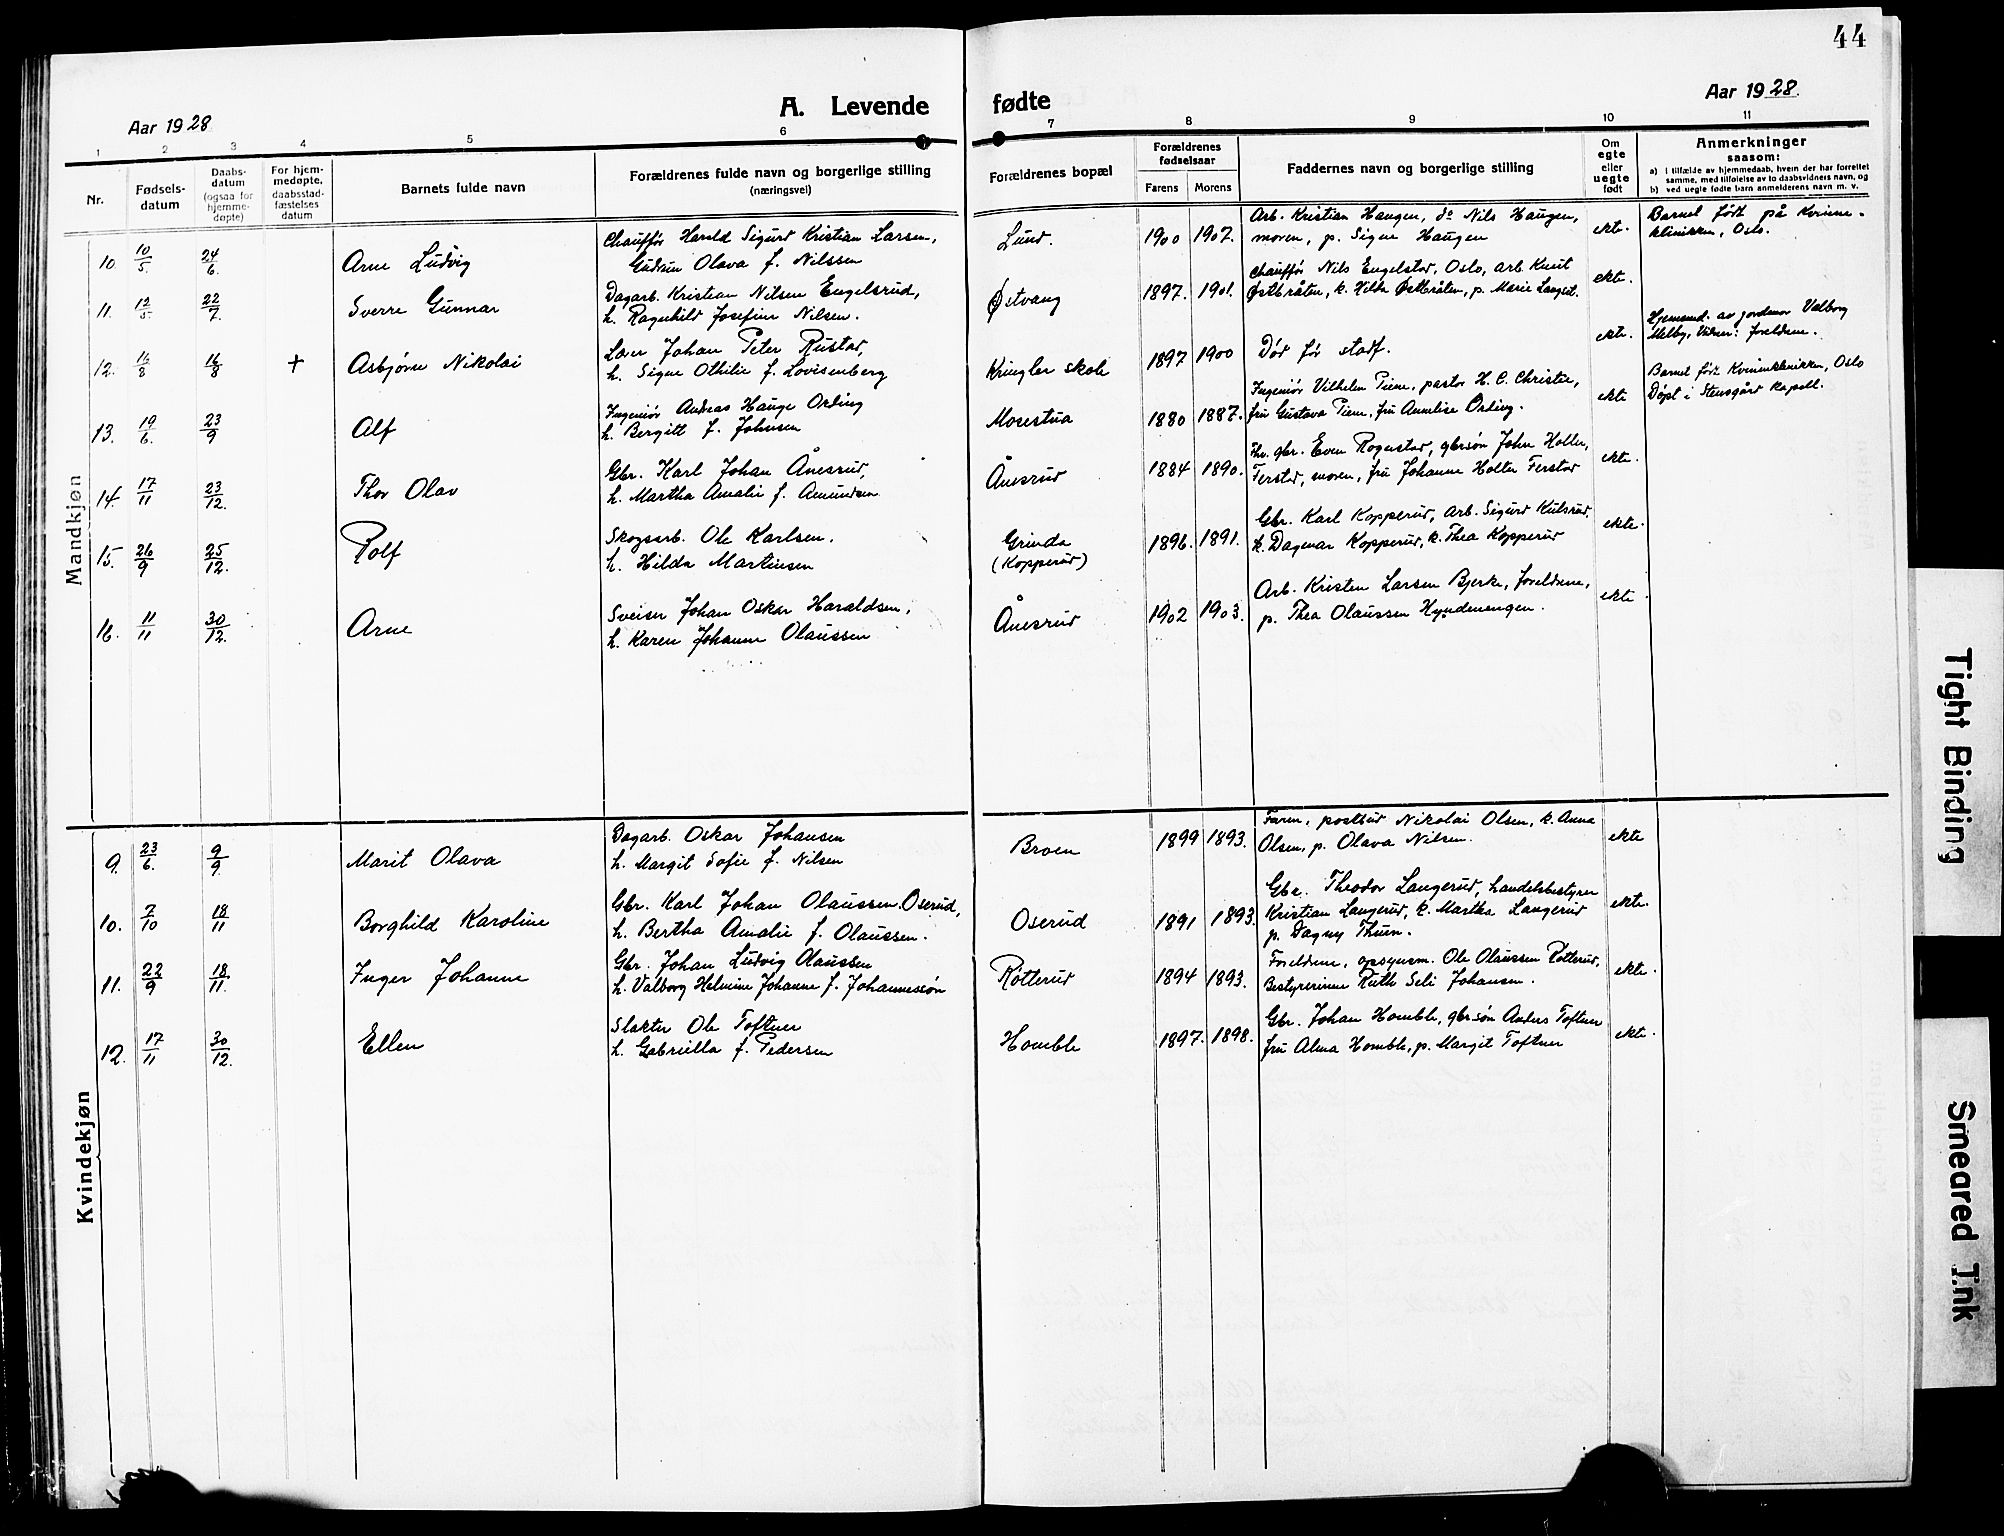 44
Aar 1928
A. Levende fødte
Aar 1928.
1 2 3 4 5 6 7 8 9 10 11
Nr.
Fødsels-
datum
Daabs-
datum
(ogsaa for
hjemme-
døpte)
For hjem-
medøpte,
daabsstad-
fæstelses
datum
Barnets fulde navn
Forældrenes fulde navn og borgerlige stilling
(næringsvei)
Forældrenes bopæl
Forældrenes
fødselsaar
Farens Morens
Faddernes navn og borgerlige stilling
Om
egte
eller
uegte
født
Anmerkninger
saasom:
a) i tilfælde av hjemmedaab, hvem der har forrettet
samme, med tilføielse av to daabsvidners navn, og
b) ved uegte fødte barn anmelderens navn m. v.
Mandkjøn
10. 10/5. 24/6. Arne Ludvig
Chauffør Harald Sigurd Kristian Larsen,
Gudrun Olava f. Nilssen
Lund. 1900 1907.
Arb. Kristian Haugen, do Nils Haugen,
moren, p. Signe Haugen
ekte.
Barnet født på Kvinne-
klinikken, Oslo.
11. 12/5. 22/7 Sverre Gunnar
Dagarb. Kristian Nilsen Engelsrud,
h. Ragnhild Josefine Nilsen.
Østvang 1897. 1901.
Chauffør Nils Engelstad, Oslo, arb. Knut
Østbråten, k. Hilda Østbråten, p. Marie Langset.
ekte.
12. 16/8 16/8 + Asbjørn Nikolai
Lærer Johan Peter Rustad,
h. Signe Othilie f. Lovisenberg
Kringler skole 1897 1900
Død før stadf.
ekte.
Hjemmed. av jordmor Valborg
Melby, Vidner: foreldrene.
13. 19/6. 23/9 Alf
Ingeniør Andreas Hauge Ording
h. Bergitt f. Johnsen
Mosestua 1880 1887.
Ingeniør Vilhelm Piene, pastor H. C. Christie,
fru Gustava Piene, fru Annelise Ording.
ekte
Barnet født Kvinneklinikken, Oslo
Døpt i Stensgård kapell.
14. 17/11 23/12. Thor Olav
Gbr. Karl Johan Ånesrud,
h. Martha Amalie f. Amundsen
Ånesrud 1884 1890.
Fhv. gbr. Even Rogerstad, gbrsøn John Holter,
Ferstad, moren, fru Johanne Holter Ferstad
ekte.
15. 26/9 25/12. Rolf
Skogsarb. Ole Karlsen.
h. Hilda Martinsen
Grinda
(Kopperud)
1896. 1891.
Gbr. Karl Kopperud, arb. Sigurd Kulsrud,
k. Dagmar Kopperud, k. Thea Kopperud
ekte.
16. 11/11 30/12. Arne
Sveiser Johan Oskar Haraldsen,
h. Karen Johanne Olaussen
Ånesrud 1902 1903.
Arb. Kristen Larsen Bjerke, foreldrene,
p. Thea Olaussen Hyndenengen.
ekte.
Kvindekjøn
9. 23/6. 9/9. Marit Olava
Dagarb. Oskar Johansen
h. Margit Sofie f. Nilsen
Broen 1899 1893.
Faren, postbud Nikolai Olsen, k. Anna
Olsen, p. Olava Nilsen.
ekte
10. 7/10 18/11 Borghild Karoline
Gbr. Karl Johan Olaussen Oserud,
h. Bertha Amalie f. Olaussen.
Oserud 1891 1893.
Gbr. Theodor Langerud, handelsbestyrer
Kristian Langerud, k. Martha Langerud
p. Dagny Thurn.
ekte.
11. 22/9 18/11. Inger Johanne
Gbr. Johan Ludvig Olaussen
h. Valborg Helmine Johanne f. Johannessøn
Røtterud 1894 1893.
Foreldrene, opsynsm. Ole Olaussen Røtterud,
Bestyrerinne Ruth Seli Johansen.
ekte.
12. 17/11 30/12. Ellen
Slakter Ole Toftner
h. Gabriella f. Pedersen
Homble 1897. 1898.
Gbr. Johan Homble, gbrsøn Anders Toftner
fru Alma Homble, p. Margit Toftner
ekte.
Tight Binding
Smeared Ink